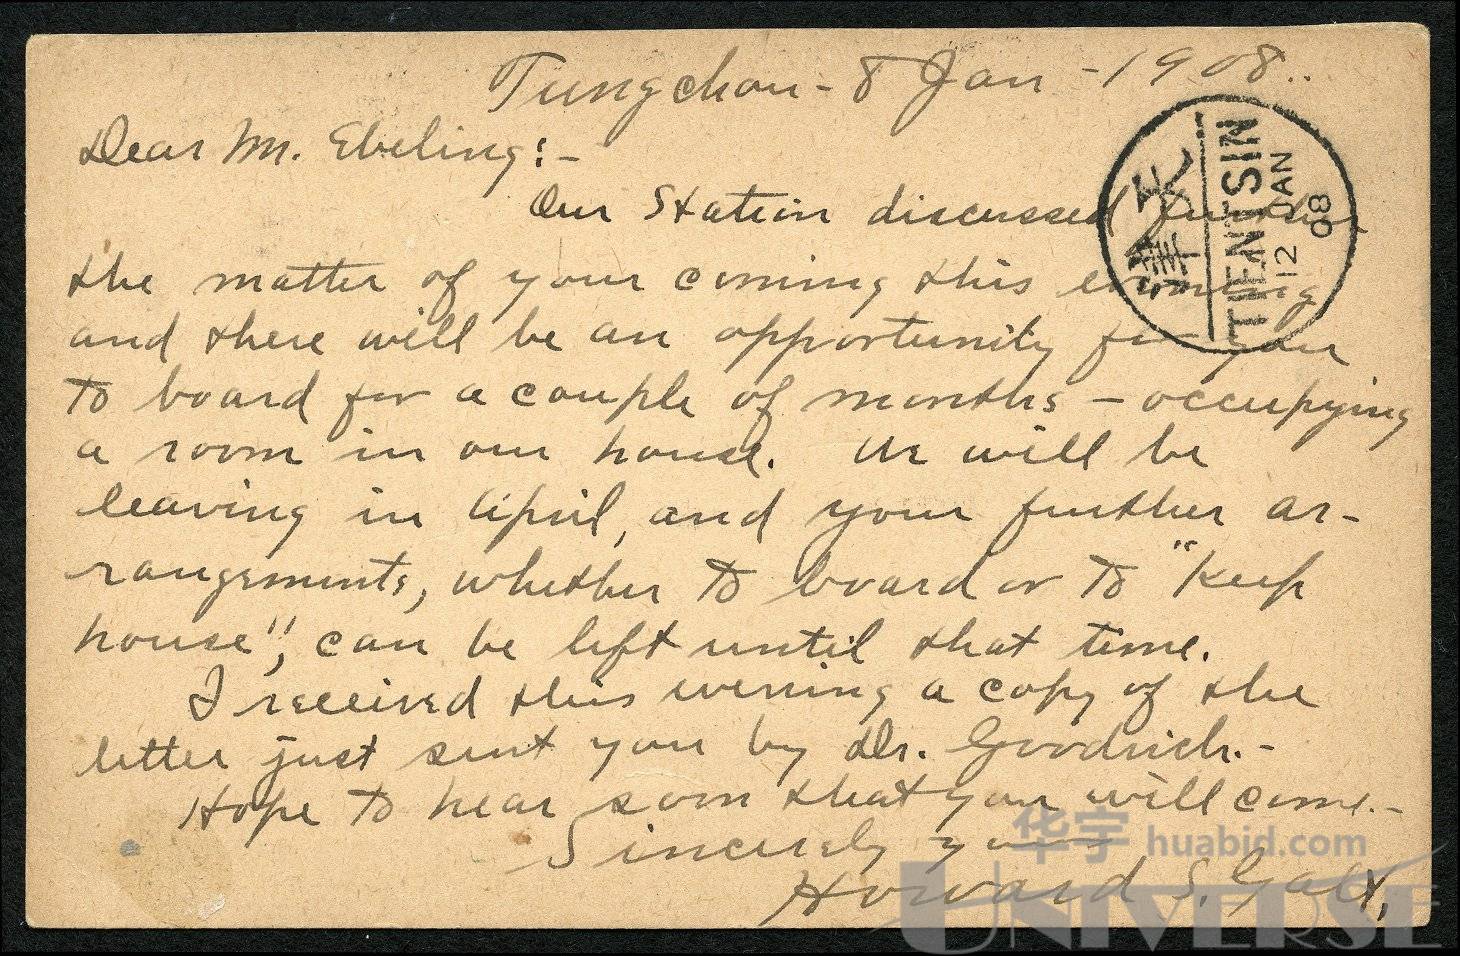 Tungchou - 8 Jan - 1908..
Dear Mr. Ebeling:-
Our Station discussed further
the matter of your coming this evening
and there will be an opportunity for you
to board for a couple of months - occupying
a room in our house. We will be
leaving in April, and your further ar-
rangements, whether to board or to "keep
house", can be left until that time.
I received this evening a copy of the
letter just sent you by Dr. Goodrich.-
Hope to hear soon that you will come.-
Sincerely yours
Howard S. Galt,
天津
TIENTSIN
12 JAN
08
华宇 huabid.com
UNIVERSE